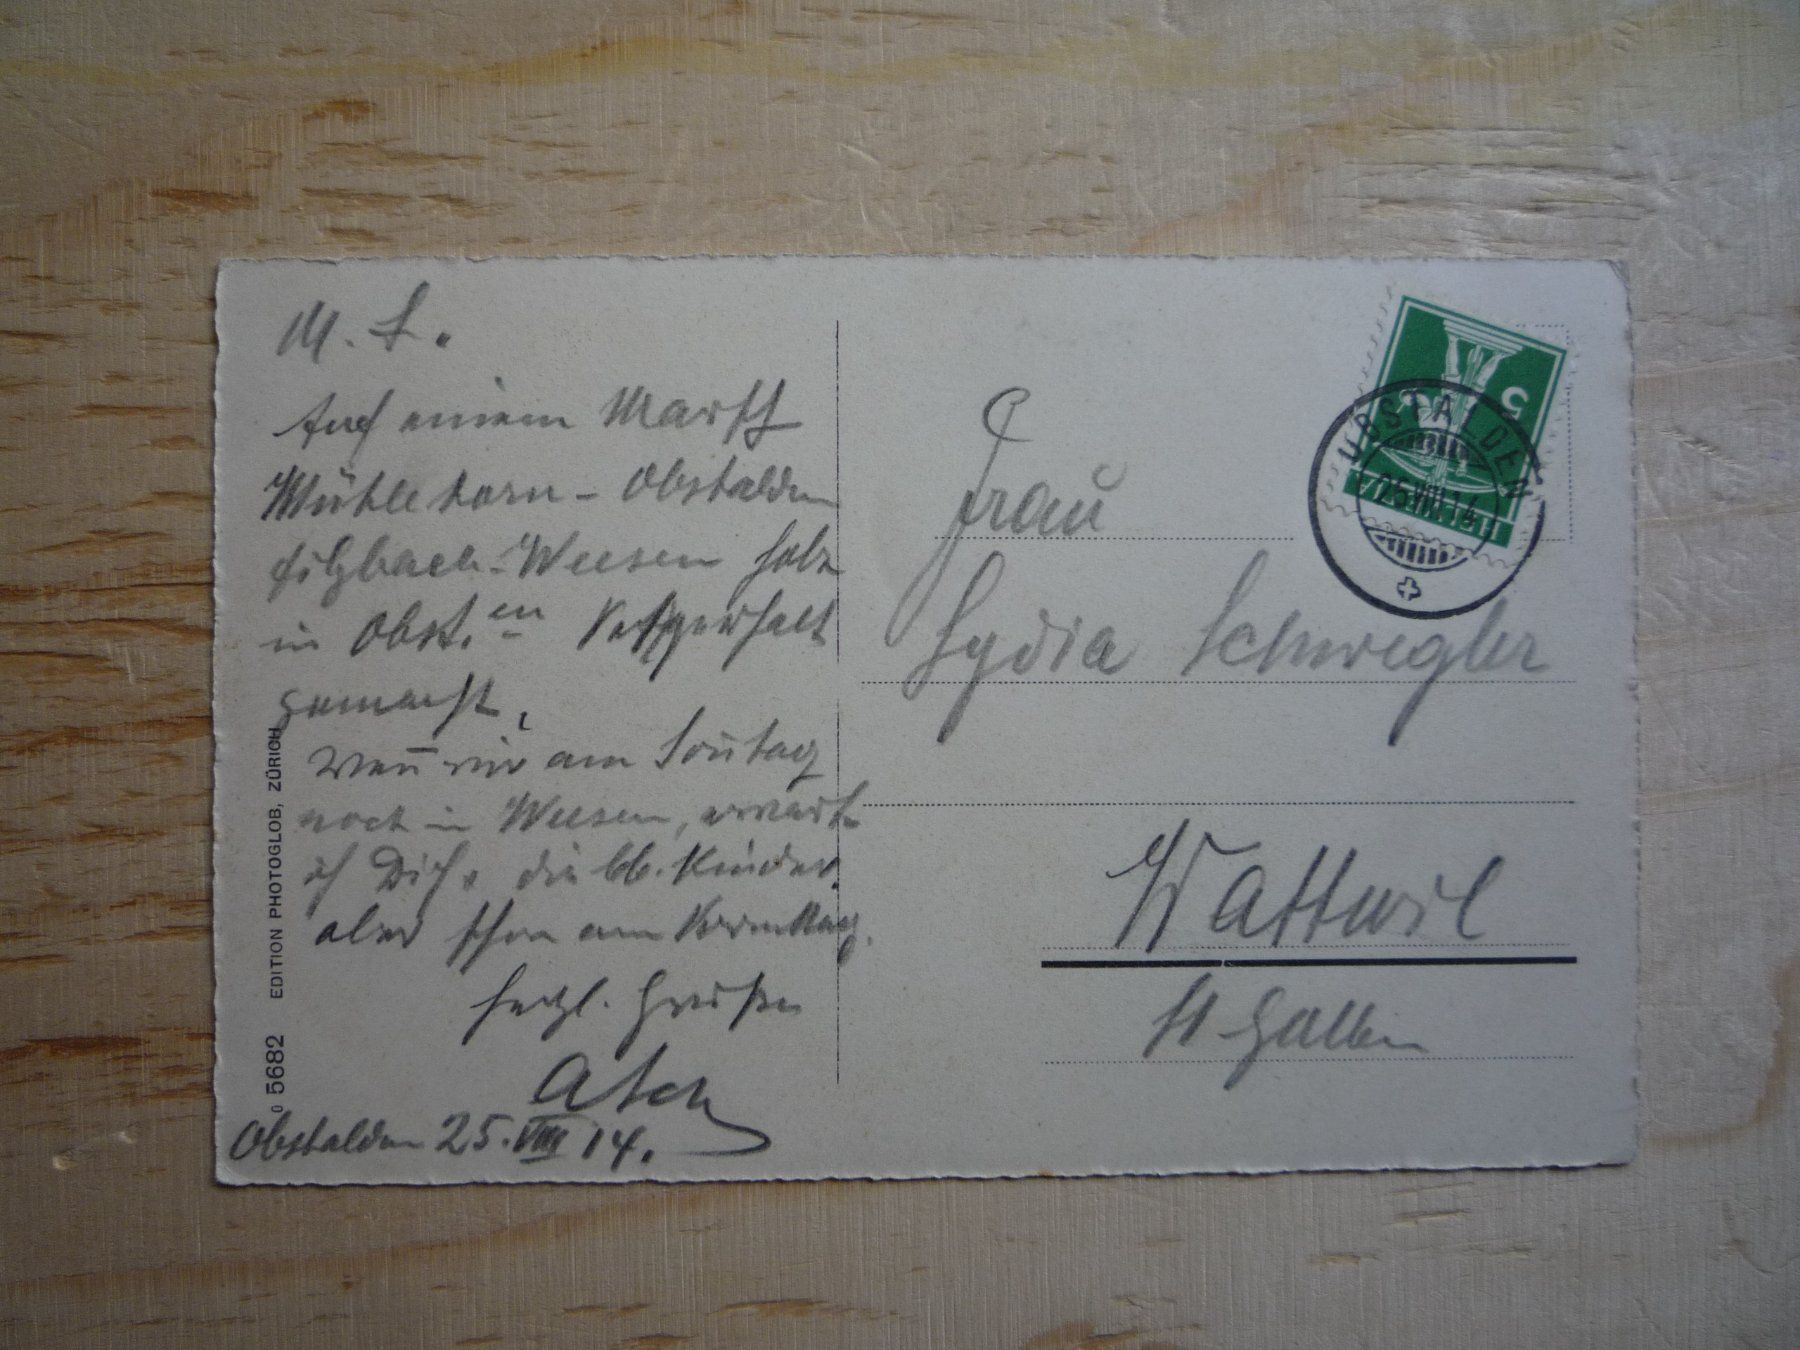 M. L.
Auf einem Marsch
Mühlehorn - Obstalden
Filzbach - Weesen
in Obst.en
gemacht.
Wen̄ wir am Son̄tag
noch in Weesen, erwarte
ich Dich & die lb. Kinder
aber schon am Vormittag.
herzl. Grüße
Obstalden 25. VIII 14.
EDITION PHOTOGLOB, ZÜRICH
o 5682
5
OBSTALDEN
25.VIII.14
Frau
Lydia Schwegler
Wattwil
St Gallen